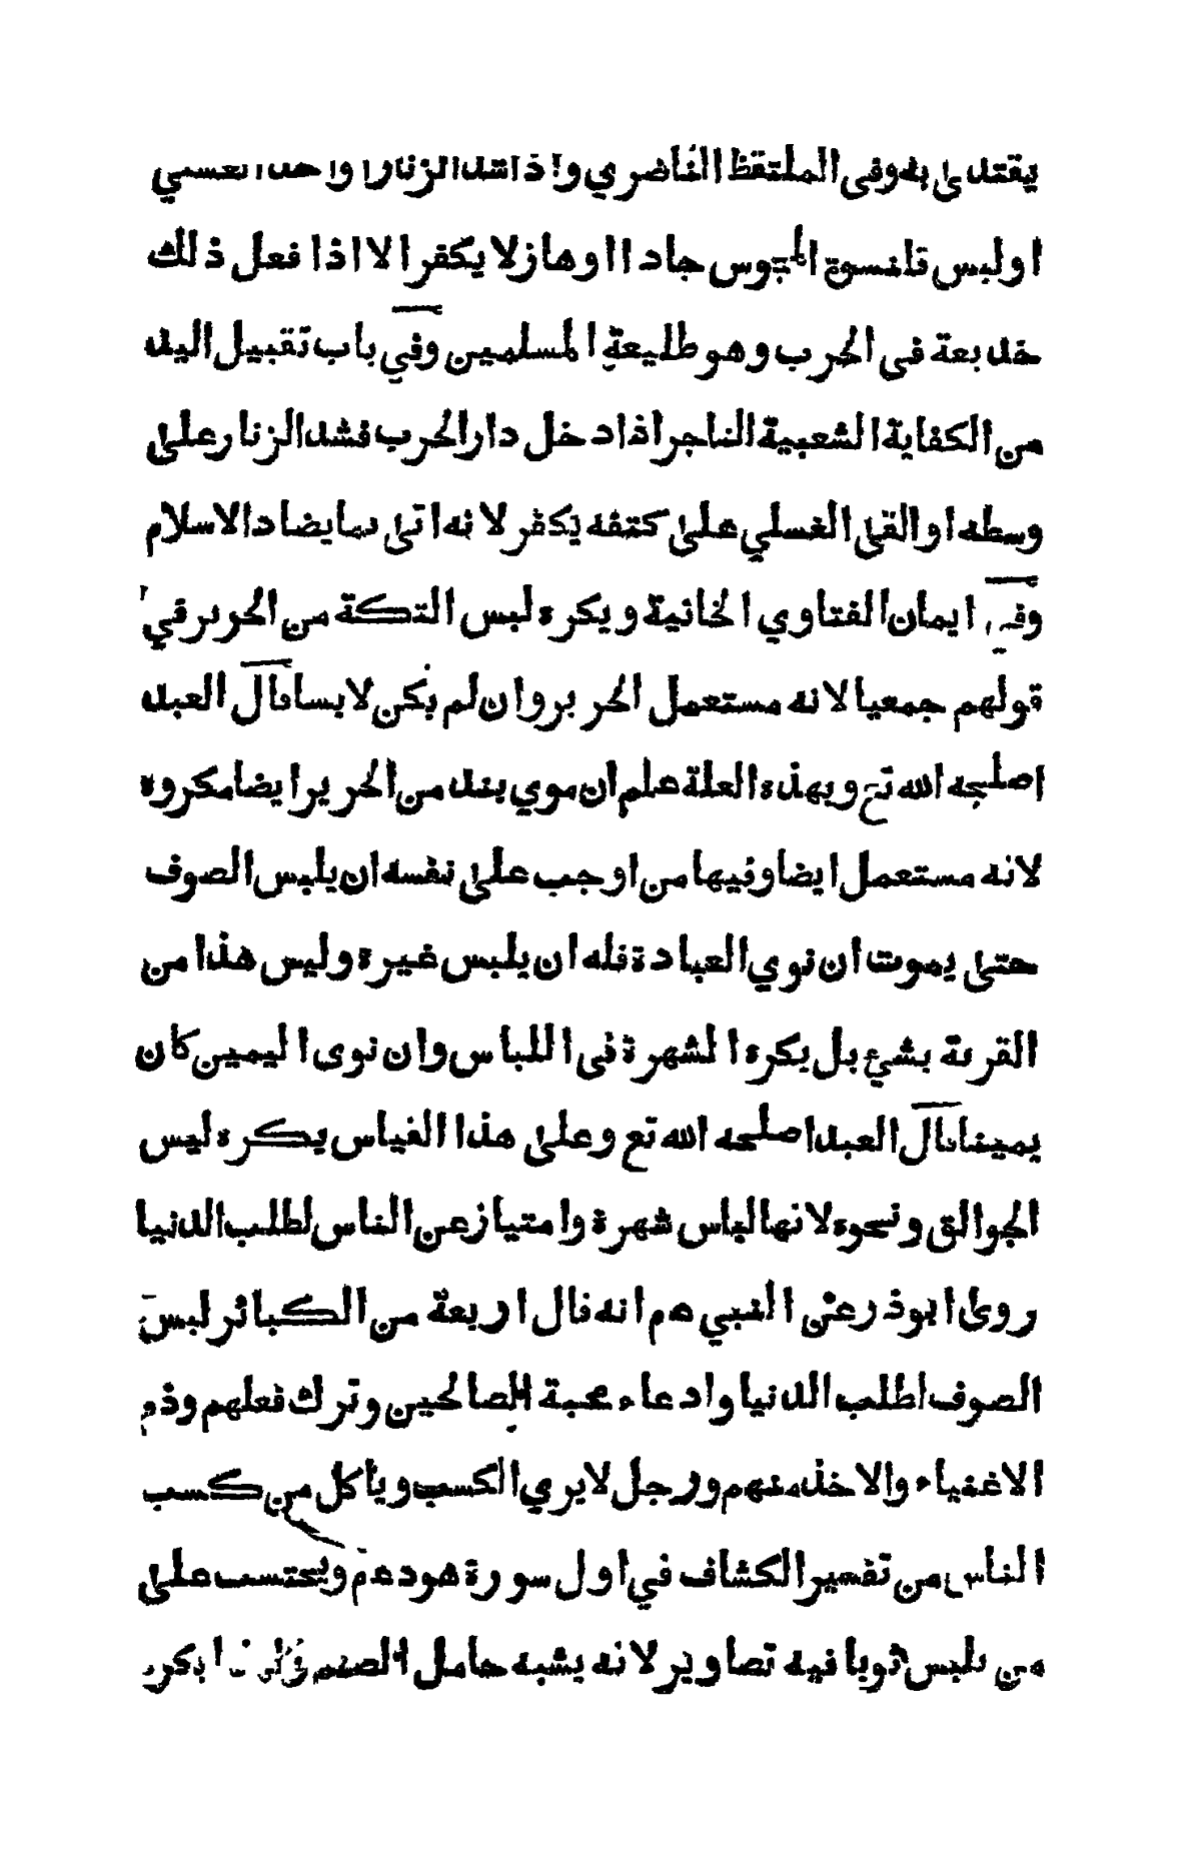 يقتدى به وفى الملتقط الناصري واذا شد الزنار او اخذ العسلي
او لبس قلنسوة المجوس جادا او هازلا يكفر الا اذا فعل ذلك
خديعة فى الحرب وهو طليعة المسلمين وفي باب تقبيل اليد
من الكفاية الشعبية التاجر اذا دخل دار الحرب فشد الزنار على
وسطه او القى الغسلي على كتفه يكفر لانه اتى بما يضاد الاسلام
وفي ايمان الفتاوي الخانية ويكره لبس التكة من الحرير في
قولهم جمعيا لانه مستعمل الحرير وان لم يكن لابسا قال العبد
اصلحه الله تع وبهذه العلة علم ان موي بند من الحرير ايضا مكروه
لانه مستعمل ايضا وفيها من اوجب على نفسه ان يلبس الصوف
حتى يموت ان نوي العبادة فله ان يلبس غيره وليس هذا من
القربة بشئ بل يكره الشهرة فى اللباس وان نوى اليمين كان
يمينا قال العبد اصلحه الله تع وعلى هذا القياس يكره لبس
الجوالق ونحوه لانها لباس شهرة وامتياز عن الناس لطلب الدنيا
روى ابوذر عن النبي عم انه قال اربعة من الكبائر لبس
الصوف لطلب الدنيا وادعاء محبة الصالحين وترك فعلهم وذم
الاغنياء والاخذ منهم ورجل لا يري الكسب وياكل من كسب
الناس من تفسير الكشاف في اول سورة هود عم ويحتسب على
من يلبس ثوبا فيه تصاوير لانه يشبه حامل الصنم يكره